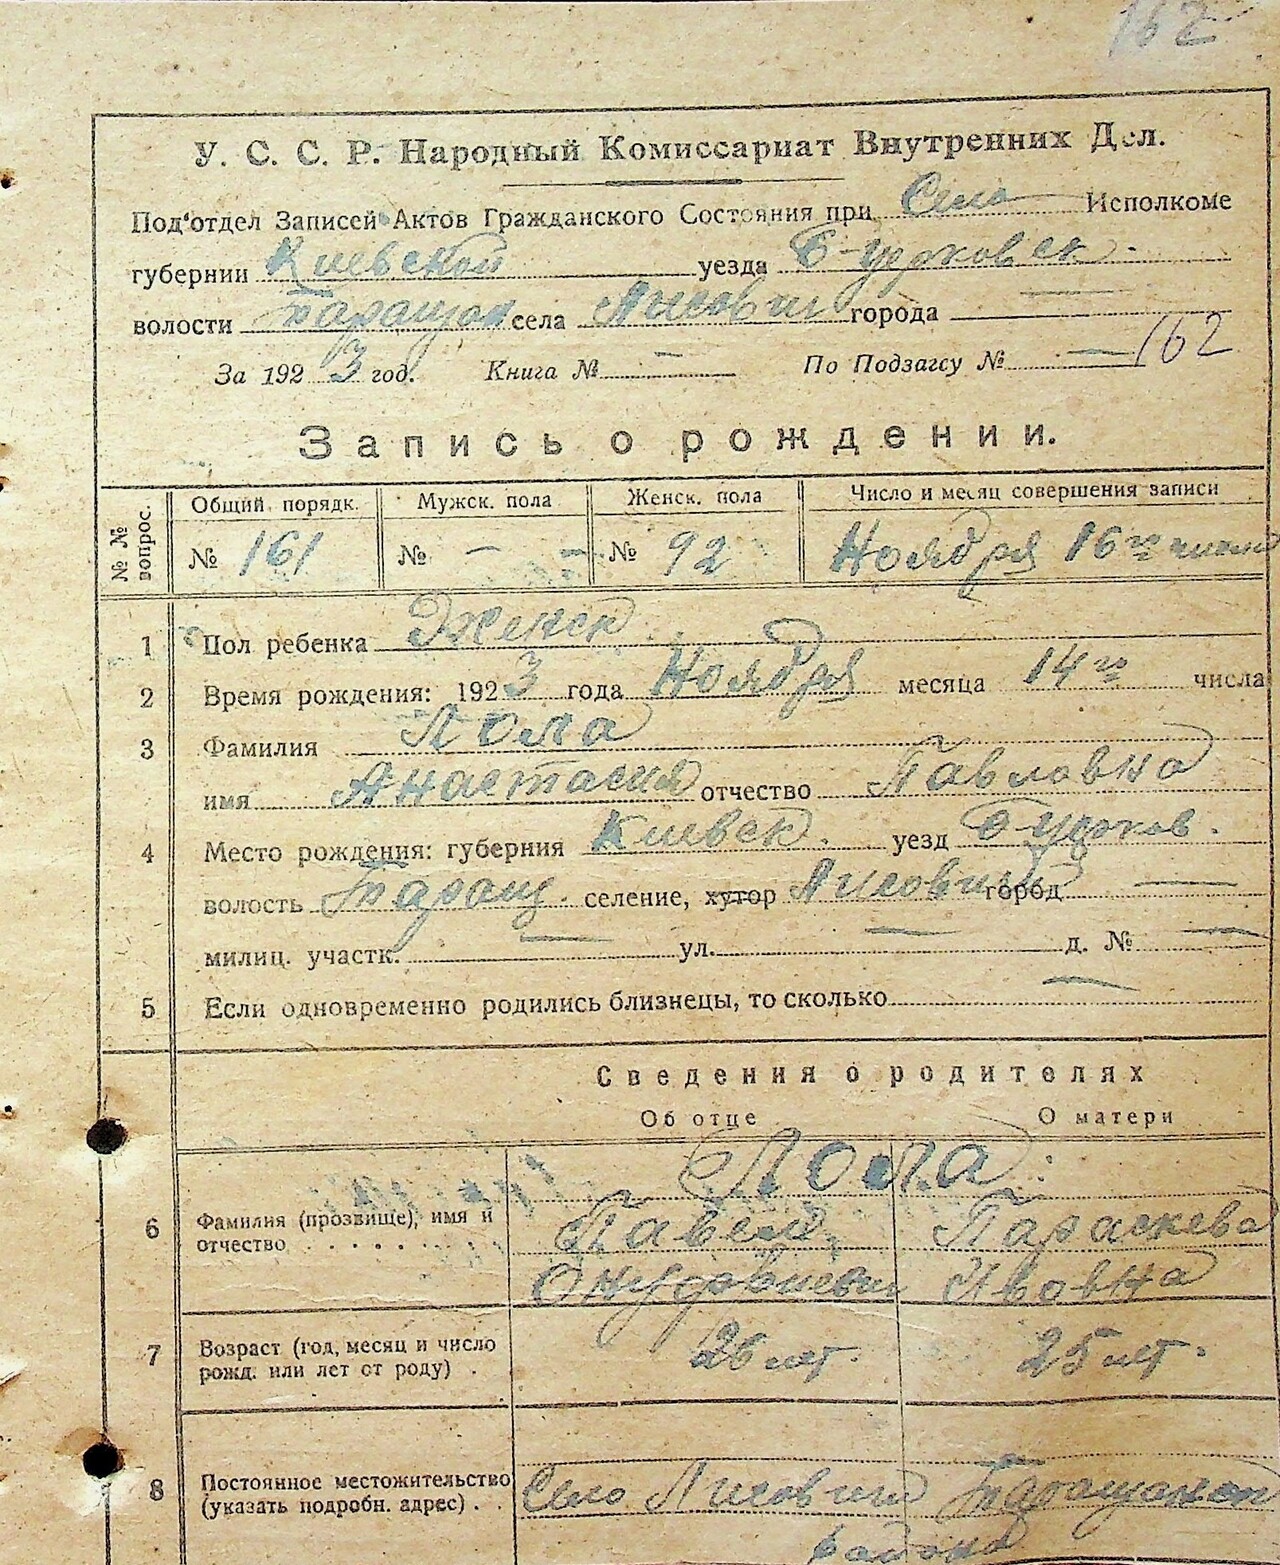 162
У. С. С. Р. Народный Комиссариат Внутренних Дел.
Под‘отдел Записей Актов Гражданского Состояния при Село Исполкоме
губернии Киевской уезда
волости Таращан села Лисович города —
За 1923 год. Книга № — По Подзагсу № — 162
Запись о рождении.
№ № вопрос. Общий порядк. Мужск. пола Женск. пола Число и месяц совершения записи
№ 161 № — № 92 Ноября 16го числа
1 Пол ребенка Женск.
2 Время рождения: 1923 года Ноября месяца 14го числа
3 Фамилия Лопа
имя Анастасия отчество Павловна
4 Место рождения: губерния Киевск. уезд
волость Таращ. селение, хутор Лисовичи город —
милиц. участк. — ул. — д. № —
5 Если одновременно родились близнецы, то сколько —
Сведения о родителях
Об отце О матери
Лопа
6 Фамилия (прозвище), имя и Павел Параскева
отчество . . . . . . . Онуфриевич Ивовна
7 Возраст (год, месяц и число 26 лет. 25 лет.
рожд. или лет от роду) .
8 Постоянное местожительство Село Лисовичи Таращанск
(указать подробн. адрес) . .
района